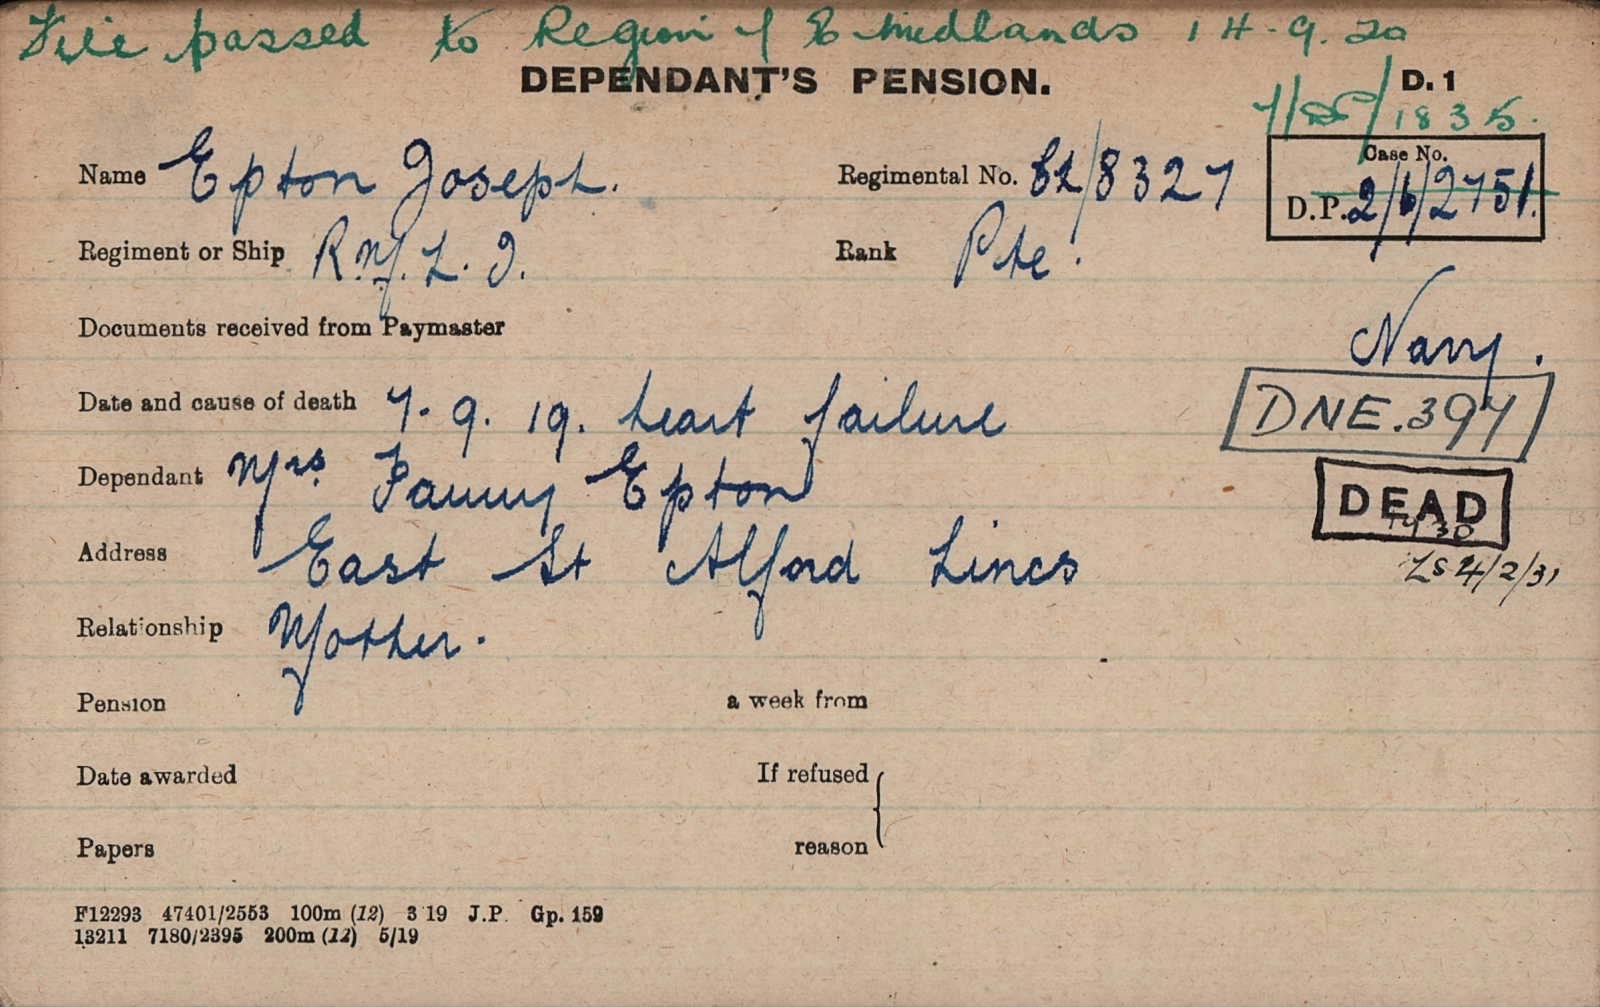 File passed to Region of E Midlands 14.9.20
DEPENDANT'S PENSION. D. 1
7/DP/1835.
Name Epton Joseph. Regimental No. /8327
Case No.
D.P. 2/6/2751.
Regiment or Ship R.M.L.I. Rank Pte.
Documents received from Paymaster
Navy.
Date and cause of death 7.9.19. heart failure
DNE.397
Dependant Mrs. Fanny Epton
DEAD
Address East St Alford Lincs
4/2/31
Relationship Mother.
Pension a week from
Date awarded If refused
Papers reason
F12293 47401/2553 100m (12) 3 19 J.P. Gp. 159
13211 7180/2395 200m (12) 5/19